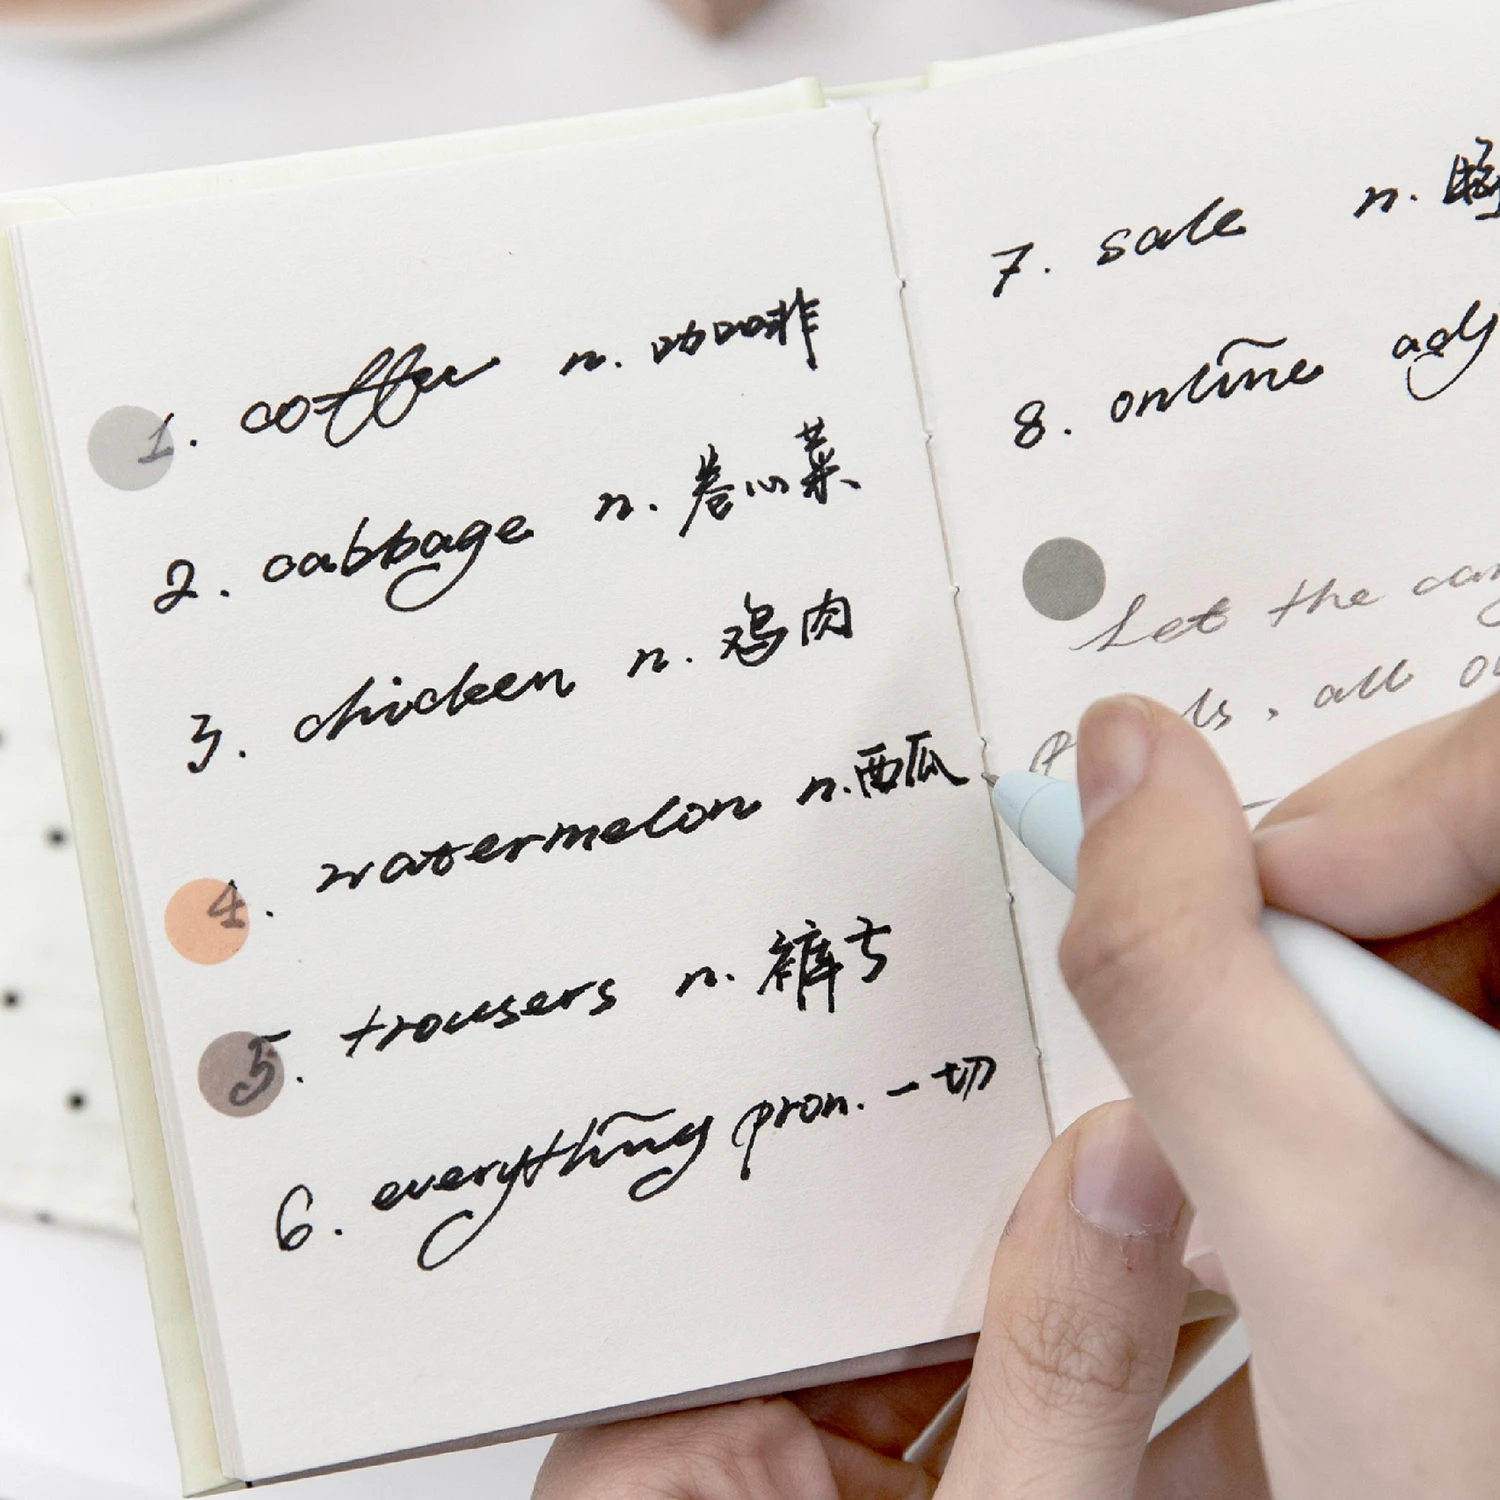 1. coffee n. 咖啡
2. cabbage n. 卷心菜
3. chicken n. 鸡肉
4. watermelon n. 西瓜
5. trousers n. 裤子
6. everything pron. 一切
7. sale n.
8. online adj
Let the
all